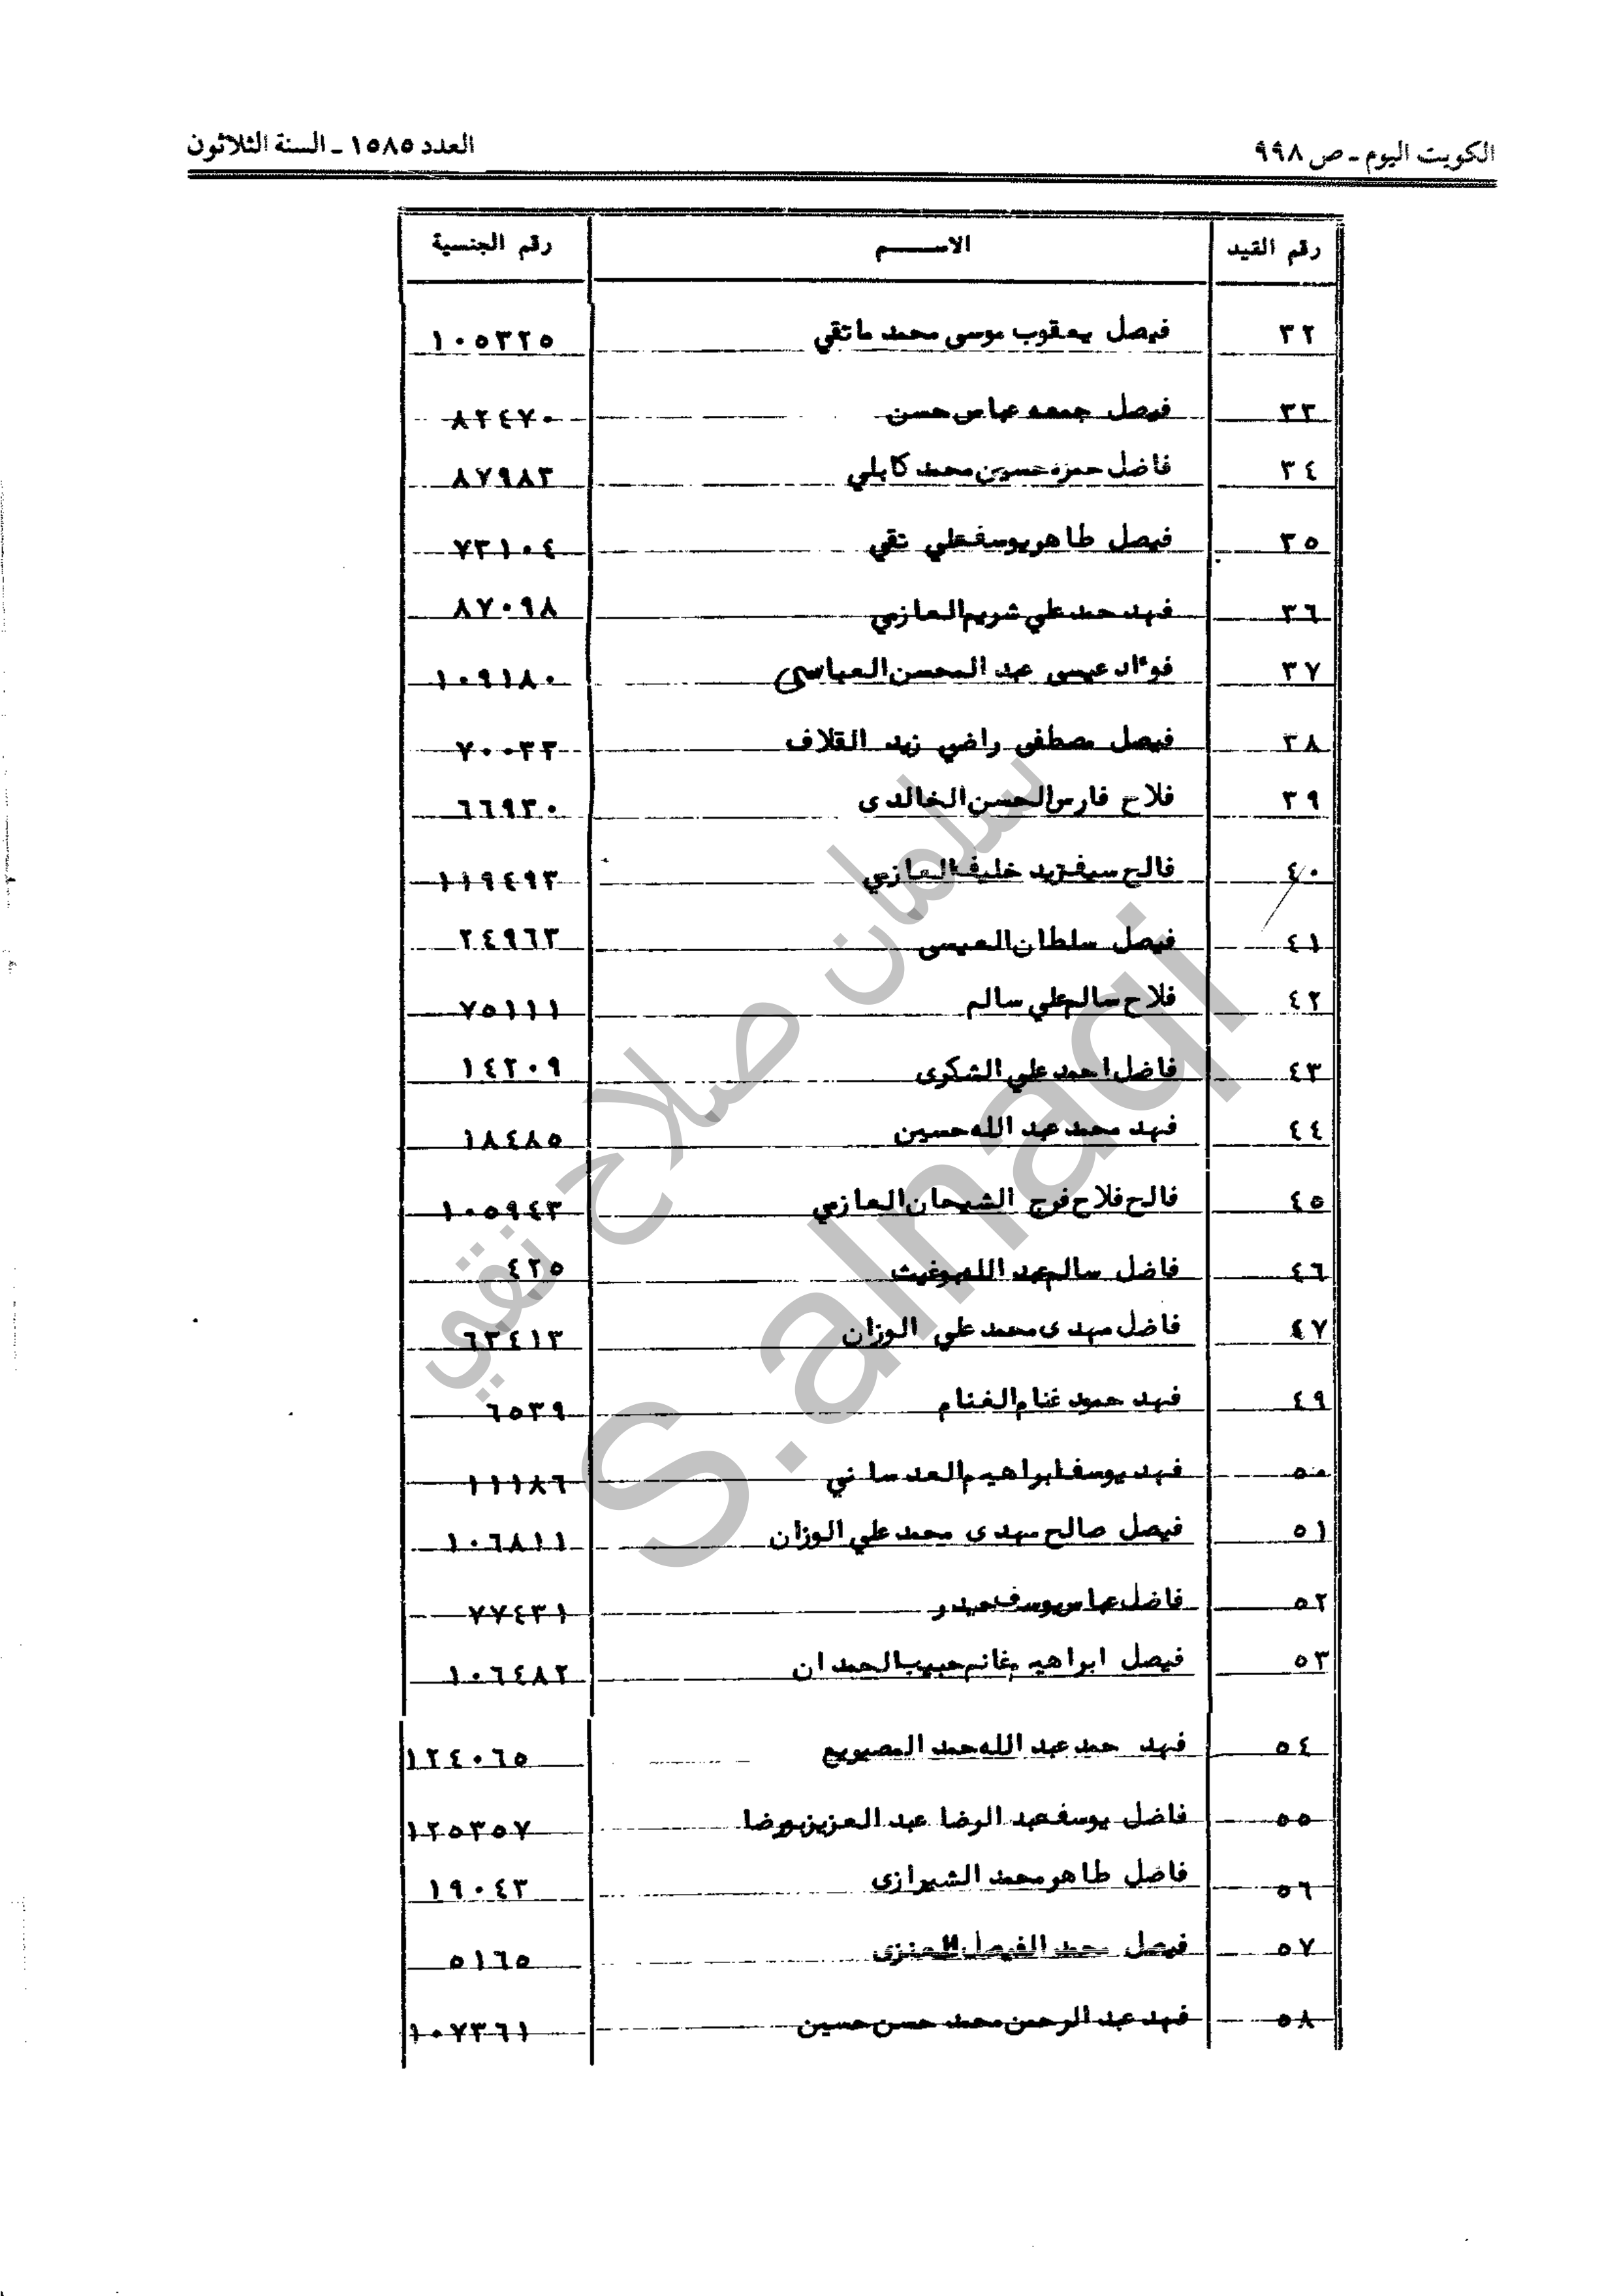 الكويت اليوم ـ ص ٩٩٨
العدد ١٥٨٥ ـ السنة الثلاثون
رقم القيد الاســـم رقم الجنسية
٣٢ فيصل يعقوب موسى محمد ماتقي ١٠٥٣٢٥
٣٣ فيصل جمعه عباس حسن ٨٢٤٧٠
٣٤ فاضل حمزه حسين محمد كابلي ٨٧٩٨٣
٣٥ فيصل طاهر يوسف علي تقي ٧٣١٠٤
٣٦ فهد حمد علي شريم العازمي ٨٧٠٩٨
٣٧ فوءاد عيسى عبد المحسن العباسي ١٠٩١٨٠
٣٨ فيصل مصطفى راضي زيد القلاف ٧٠٠٣٣
٣٩ فلاح فارس الحسن الخالدى ٦٦٩٣٠
٤٠ فالح سيف زيد خليف العازمي ١١٩٤٩٣
٤١ فيصل سلطان العيسى ٢٤٩٦٣
٤٢ فلاح سالم علي سالم ٧٥١١١
٤٣ فاضل احمد علي الشكرى ١٤٢٠٩
٤٤ فهد محمد عبد الله حسين ١٨٤٨٥
٤٥ فالح فلاح فرج الشيحان العازمي ١٠٥٩٤٣
٤٦ فاضل سالم عبد الله بوغيث ٤٢٥
٤٧ فاضل مهدى محمد علي الوزان ٦٣٤١٣
٤٩ فهد حمود غنام الغنام ٦٥٣٩
٥٠ فهد يوسف ابراهيم العدساني ١١١٨٦
٥١ فيصل صالح مهدى محمد علي الوزان ١٠٦٨١١
٥٢ فاضل عباس يوسف حيدر ٧٧٤٣١
٥٣ فيصل ابراهيم غانم حبيب الحمدان ١٠٦٤٨٢
٥٤ فهد حمد عبد الله حمد المصيويع ١٢٤٠٦٥
٥٥ فاضل يوسف عبد الرضا عبد العزيز بورضا ١٢٥٣٥٧
٥٦ فاضل طاهر محمد الشيرازى ١٩٠٤٣
٥٧ فيصل محمد الفيصل العنزى ٥١٦٥
٥٨ فهد عبد الرحمن محمد حسن حسين ١٠٧٣٦١
سلمان صلاح نقي
S.alnaqi